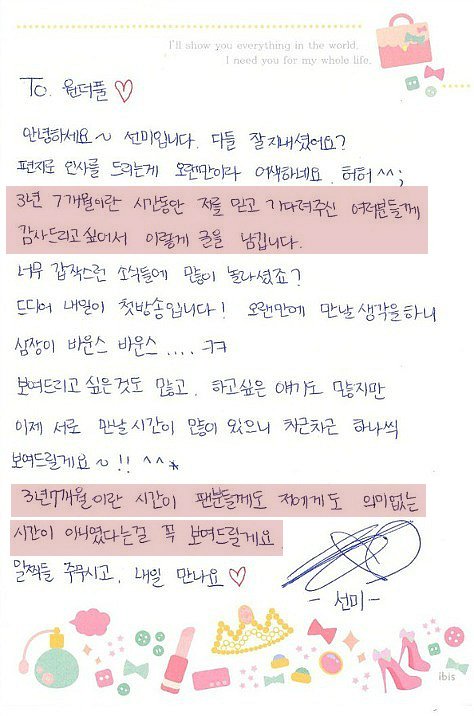 I'll show you everything in the world.
I need you for my whole life.
To. 원더풀 ♡
안녕하세요~ 선미입니다. 다들 잘지내셨어요?
편지로 인사를 드리는게 오랜만이라 어색하네요. 허허^^;
3년 7개월이란 시간동안 저를 믿고 기다려주신 여러분들께
감사드리고싶어서 이렇게 글을 남깁니다.
너무 갑작스런 소식들에 많이 놀라셨죠?
드디어 내일이 첫방송입니다! 오랜만에 만날생각을하니
심장이 바운스 바운스 .... ㅋㅋ
보여드리고 싶은것도 많고, 하고싶은 얘기도 많지만
이제 서로 만날시간이 많이 있으니 차근차근 하나씩
보여드릴게요~!! ^^*
3년7개월이란 시간이 팬분들께도 저에게도 의미없는
시간이 아니였다는걸 꼭 보여드릴게요.
일찍들 주무시고, 내일 만나요♡
- 선미 -
ibis